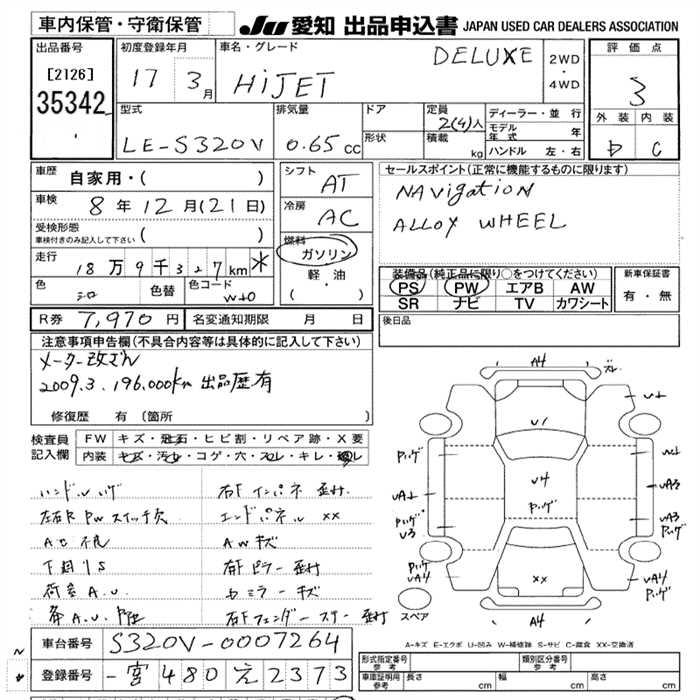 車内保管・守衛保管
JU 愛知 出品申込書 JAPAN USED CAR DEALERS ASSOCIATION
出品番号
[2126]
35342
初度登録年月
17 3月
車名・グレード
HiJET DELUXE
2WD
・
4WD
評価点
3
外装 内装
D C
型式
LE-S320V
排気量
0.65 cc
ドア
形状
定員
2(4)人
積載
kg
ディーラー・並行
モデル年式 年
ハンドル 左・右
車歴
自家用・( )
車検
8年12月(21日)
受検形態
車検付きのみ記入して下さい ( )
走行
18万9千327km *
色
シロ
色替
色コード
W+0
シフト
AT
冷房
AC
燃料
ガソリン
軽・油
( ・ )
セールスポイント(正常に機能するものに限ります)
NAVigation
ALLOY WHEEL
装備品(純正品に限り○をつけてください)
PS PW エアB AW
SR ナビ TV カワシート
新車保証書
有・無
R券 7,970円
名変通知期限 月 日
後日品
注意事項申告欄(不具合内容等は具体的に記入して下さい)
メーター改ざん
2009.3. 196,000km 出品歴有
修復歴 有 (箇所 )
検査員記入欄
FW キズ・飛石・ヒビ割・リペア跡・X要
内装 キズ・汚れ・コゲ・穴・スレ・キレ・
ハンドル
左右R PWスイッチ欠
AC不良
下廻りS
荷室A.U.
A.U.
右Fインパネ
エンドパネル XX
AWキズ
ピラー
ミラーキズ
右Fフェンダー
A4
U1
U4
XX
A4
スペア
A-キズ E-エクボ U-凹み W-補修跡 S-サビ C-腐食 XX-交換済
車台番号 S320V-0007264
登録番号 480 え 2373
形式指定番号 参考
類別区分番号 参考
車庫証明用 参考 長さ cm 幅 cm 高さ cm